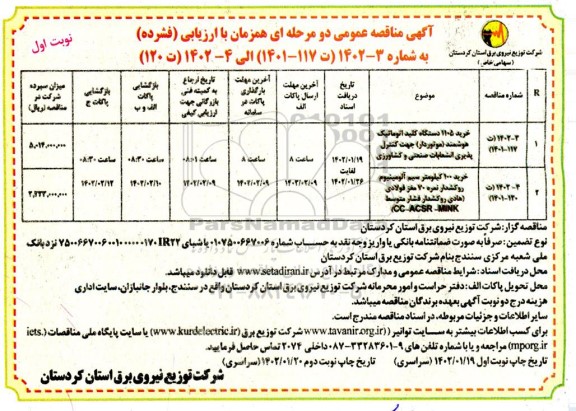 آگهی مناقصه عمومی دو مرحله ای همزمان با ارزیابی (فشرده)
به شماره ۳-۱۴۰۲ (ت ۱۱۷-۱۴۰۱) الی ۴-۱۴۰۲ (ت ۱۲۰)
نوبت اول
شرکت توزیع نیروی برق استان کردستان
(سهامی خاص)
R
شماره مناقصه
موضوع
تاریخ دریافت اسناد
آخرین مهلت ارسال پاکات الف
آخرین مهلت بارگذاری پاکات در سامانه
تاریخ ارجاع به کمیته فنی بازرگانی جهت ارزیابی کیفی
بازگشایی پاکات الف و ب
بازگشایی پاکات ج
میزان سپرده شرکت در مناقصه (ریال)
۱
۳-۱۴۰۲ (ت ۱۱۷-۱۴۰۱)
خرید ۱۱۰۵ دستگاه کلید اتوماتیک هوشمند (موتوردار) جهت کنترل پذیری انشعابات صنعتی و کشاورزی
۵,۰۱۴,۰۰۰,۰۰۰
۲
۴-۱۴۰۲ (ت ۱۲۰-۱۴۰۱)
خرید ۱۰۰ کیلومتر سیم آلومینیوم روکشدار نمره ۷۰ مغز فولادی (هادی روکشدار فشار متوسط CC-ACSR-MINK)
۱۴۰۲/۰۱/۱۹ لغایت ۱۴۰۲/۰۱/۲۶
ساعت ۸ ۱۴۰۲/۰۲/۰۹
ساعت ۸ ۱۴۰۲/۰۲/۰۹
ساعت ۰۸:۰۱ ۱۴۰۲/۰۲/۰۹
ساعت ۰۸:۳۰ ۱۴۰۲/۰۲/۱۰
ساعت ۰۸:۳۰ ۱۴۰۲/۰۲/۱۳
ParsNamadData
مناقصه گزار: شرکت توزیع نیروی برق استان کردستان
نوع تضمین: صرفا به صورت ضمانتنامه بانکی یا واریز وجه نقد به حساب شماره ۰۱۰۷۵۰۰۶۶۷۰۰۶ با شبای IR۲۲ نزد بانک
ملی شعبه مرکزی سنندج بنام شرکت توزیع برق استان کردستان
محل دریافت اسناد: شرایط مناقصه عمومی و مدارک مرتبط در آدرس www.setadiran.ir قابل دانلود میباشد.
محل تحویل پاکات الف: دفتر حراست و امور محرمانه شرکت توزیع نیروی برق استان کردستان واقع در سنندج، بلوار جانبازان، سایت اداری
هزینه درج دو نوبت آگهی بعهده برندگان مناقصه میباشد.
سایر اطلاعات و جزئیات مربوطه، در اسناد مناقصه مندرج است.
برای کسب اطلاعات بیشتر به سایت توانیر (www.tavanir.org.ir) شرکت توزیع برق (www.kurdelectric.ir) یا سایت پایگاه ملی مناقصات (iets.
mporg.ir) مراجعه و یا با شماره تلفن های ۹-۳۳۲۸۳۶۰۱-۰۸۷ داخلی ۲۰۷۴ تماس حاصل فرمایید.
تاریخ چاپ نوبت اول ۱۴۰۲/۰۱/۱۹ (سراسری) تاریخ چاپ نوبت دوم ۱۴۰۲/۰۱/۲۰ (سراسری)
شرکت توزیع نیروی برق استان کردستان